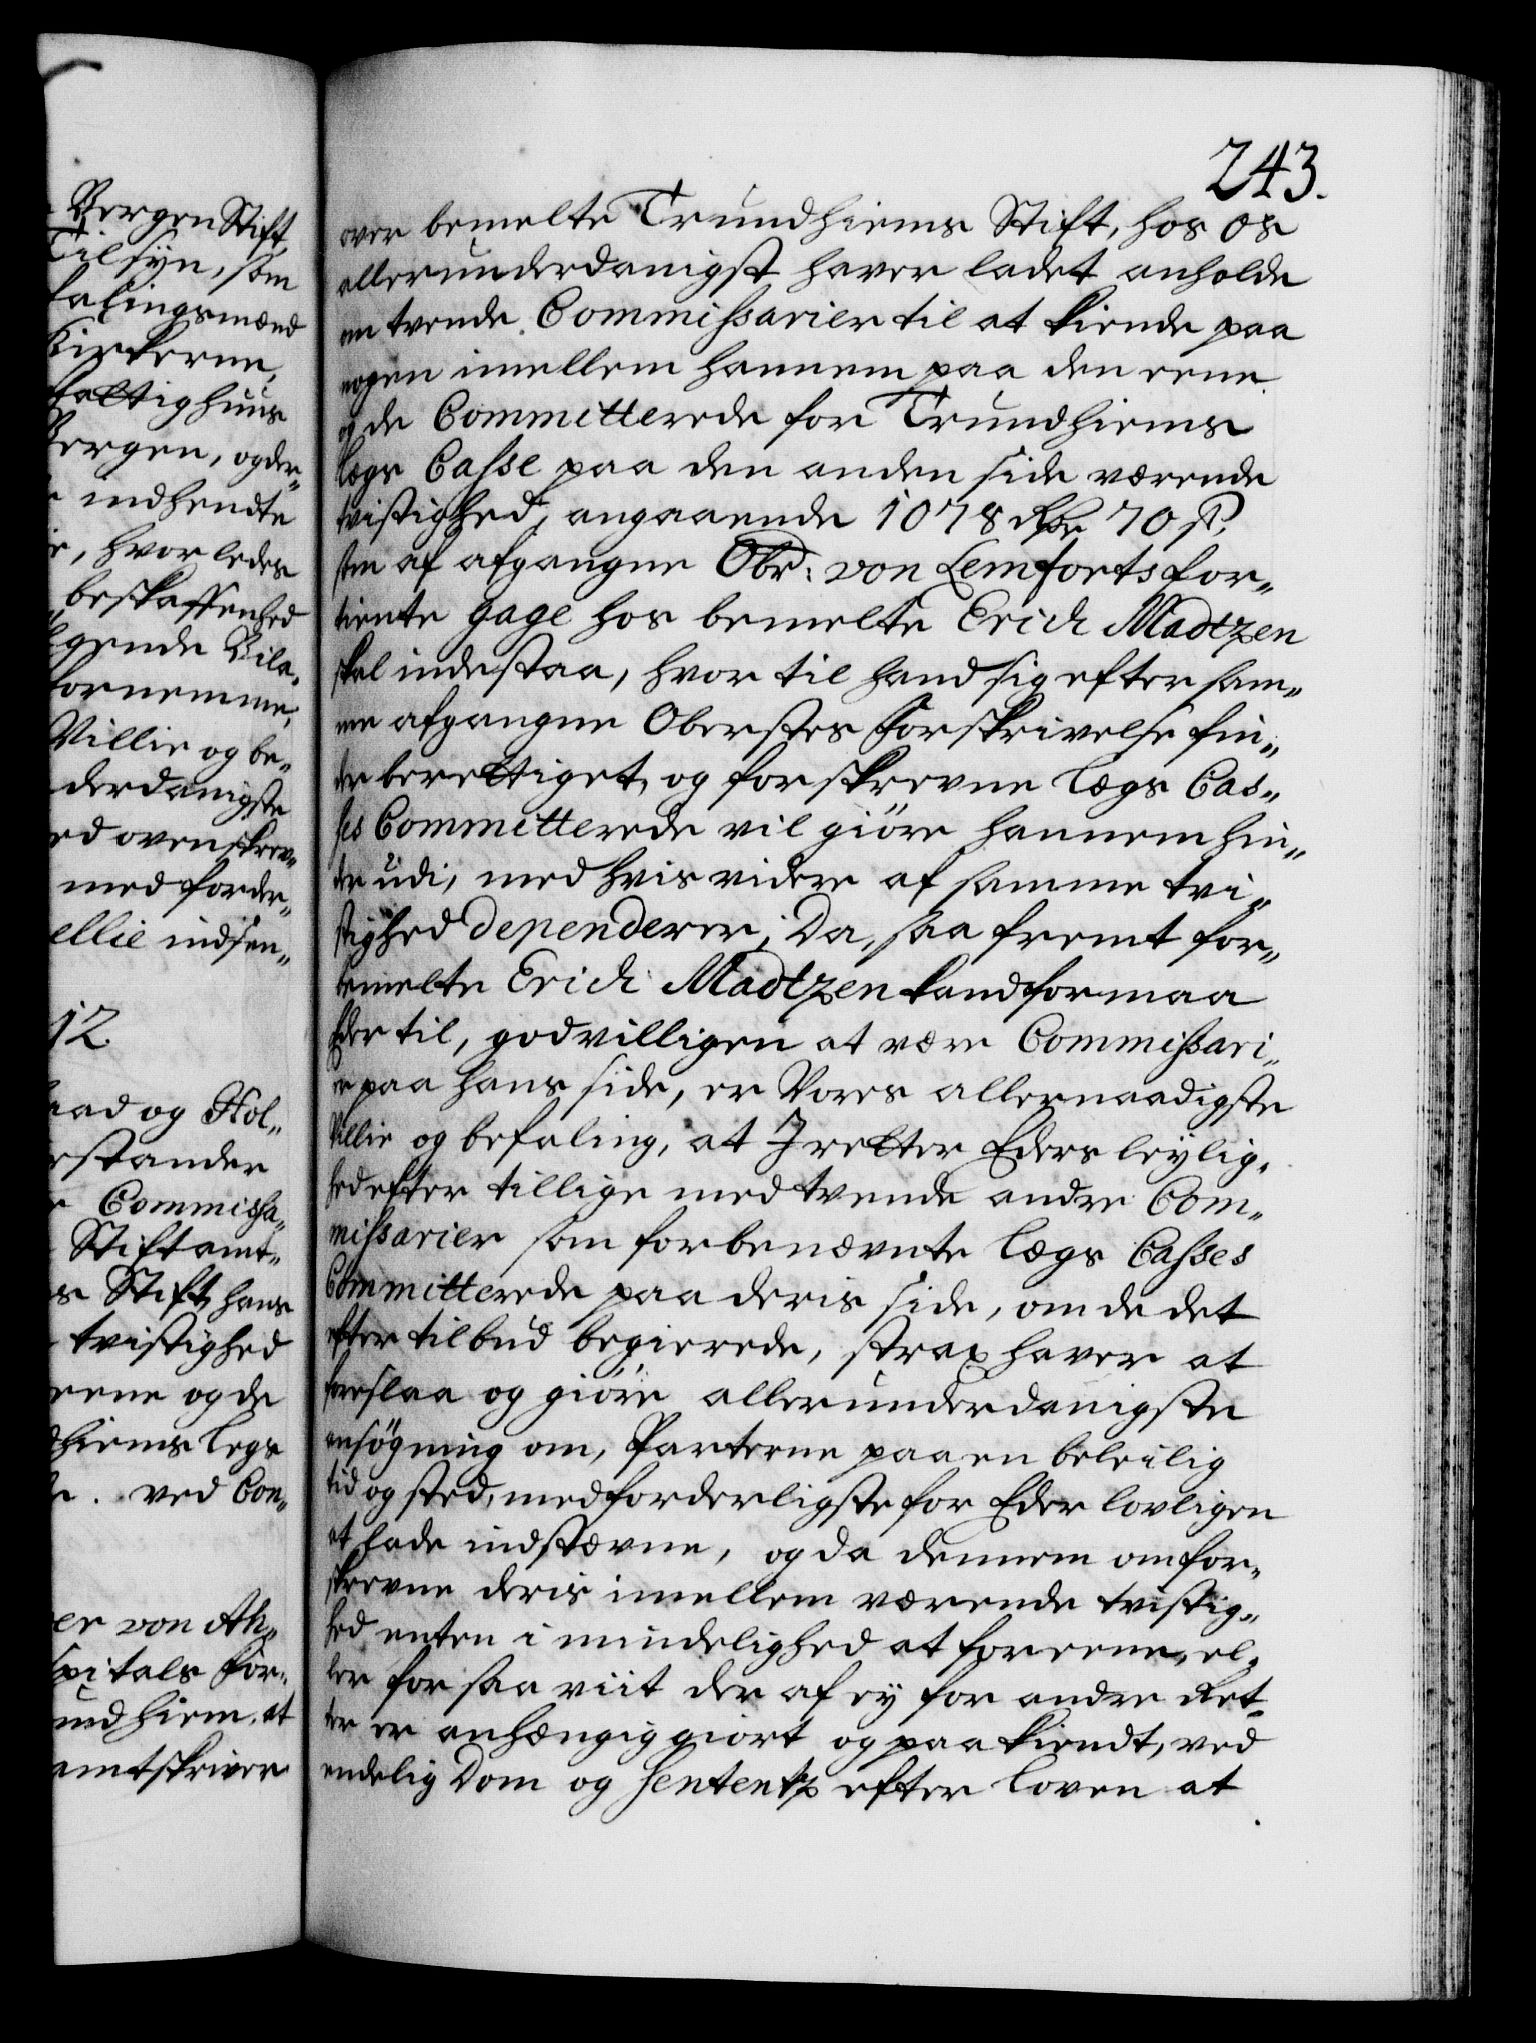 Bergen Stift
Tilsyn, som
falingsmænd
Kirkerne,
fattighuus
Bergen, og der„
indhendte
, hvorledes
beskaffenhed
gende Bila„
fornemme,
Villie og be„
derdanigste
ed ovenskrev„
med forder„
ellie indsen„
12.
aad og Hol„
rstander
Commissa„
Stiftamt„
s Stift, hans
tvistighed
eene og de
dhiems Legs
ved Con„
er von Ah„
spitals For„
undhiem, at
amtskriver
243.
over bemelte Trundhiems Stift, hos os
allerunderdanigst haver ladet anholde
om tvende Commissarier til at kiende paa
nogen imellem hannem paa den eene
og de Committerede for Trundhiems
Lægs Casse paa den anden side værende
tvistighed, angaaende 1078 Rdr 70 s.
som af afgangne Obr: von Lemforts for„
tiente gage hos bemelte Erich Madtzen
skal indestaa, hvor til hand sig efter sam„
me afgangne Oberstes Forskrivelse fin„
der berettiget, og forskrevne Lægs Cas„
ses Committerede vil giöre hannem hin„
der udi, med hvis videre af samme tvi„
stighed dependerer; Da, saa fremt for„
bemelte Erich Madtzen kand formaa
Eder til, godvilligen at være Commissari„
er paa hans side, er Vores allernaadigste
Villie og befaling, at I retter Eders leylig„
hed efter tillige med tvende andre Com„
missarier som forbenævnte Lægs Casses
Committerede paa deris side, om de det
efter tilbud begierede, strax haver at
foreslaa og giöre allerunderdanigste
ansögning om, Parterne paa en beleilig
tid og sted, med forderligste for Eder lovligen
at lade indstævne, og da dennem om for„
skrevne deris imellem værende tvistig„
hed enten i mindelighed at foreene, el„
ler for saa viit der af ey for andre Ret„
ter er anhængig giort og paakiendt, ved
endelig Dom og Sententz efter Loven at